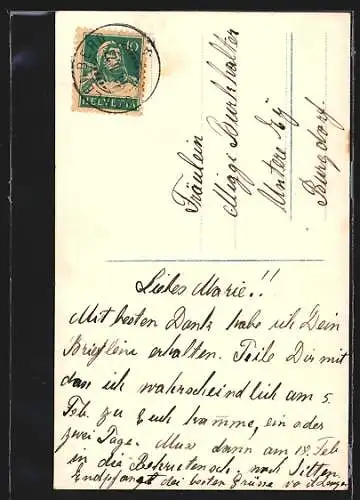 10
HELVETIA
Fräulein
Miggi Burkhalter
Untere
Burgdorf.
Liebes Marie!!
Mit besten Dank habe ich Dein
Brieflein erhalten. Teile Dir mit
das ich wahrscheindlich am 5.
Feb. zu Euch komme, ein oder
zwei Tage. Mus dann am 18. Feb
in die Rekrutensch. nach Sitten.
Endpfange die besten Grüsse von